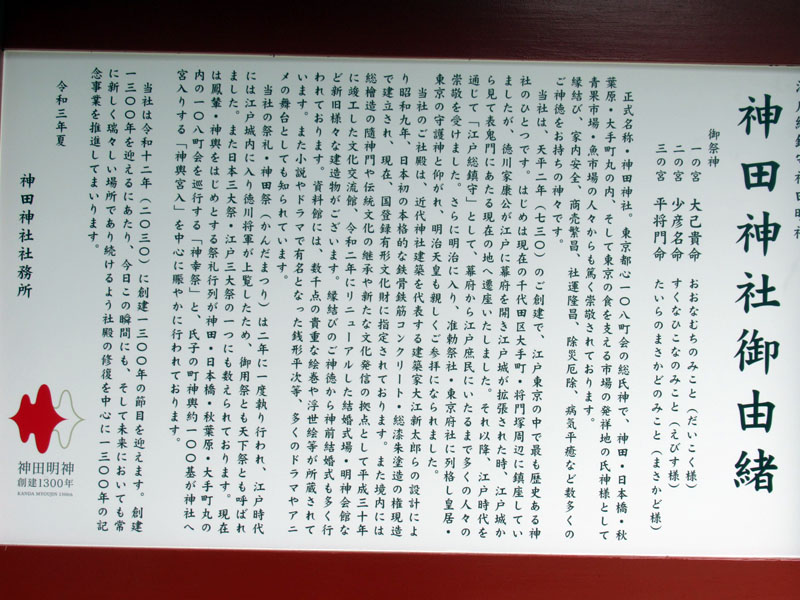 神田神社御由緒
御祭神
一の宮 大己貴命 おおなむちのみこと（だいこく様）
二の宮 少彦名命 すくなひこなのみこと（えびす様）
三の宮 平将門命 たいらのまさかどのみこと（まさかど様）
正式名称・神田神社。東京都心一〇八町会の総氏神で、神田・日本橋・秋
葉原・大手町丸の内、そして東京の食を支える市場の発祥地の氏神様として
青果市場・魚市場の人々からも篤く崇敬されております。
縁結び、家内安全、商売繁昌、社運隆昌、除災厄除、病気平癒など数多くの
ご神徳をお持ちの神々です。
当社は、天平二年（七三〇）のご創建で、江戸東京の中で最も歴史ある神
社のひとつです。はじめは現在の千代田区大手町・将門塚周辺に鎮座してい
ましたが、徳川家康公が江戸に幕府を開き江戸城が拡張された時、江戸城か
ら見て表鬼門にあたる現在の地へ遷座いたしました。それ以降、江戸時代を
通じて「江戸総鎮守」として、幕府から江戸庶民にいたるまで多くの人々の
崇敬を受けました。さらに明治に入り、准勅祭社・東京府社に列格し皇居・
東京の守護神と仰がれ、明治天皇も親しくご参拝になられました。
当社のご社殿は、近代神社建築を代表する建築家大江新太郎らの設計によ
り昭和九年、日本初の本格的な鉄骨鉄筋コンクリート・総漆朱塗造の権現造
で建立され、現在、国登録有形文化財に指定されております。また境内には
総檜造の隨神門や伝統文化の継承や新たな文化発信の拠点として平成三十年
に竣工した文化交流館、令和二年にリニューアルした結婚式場・明神会館な
ど新旧様々な建造物がございます。縁結びのご神徳から神前結婚式も多く行
われております。資料館には、数千点の貴重な絵巻や浮世絵等が所蔵されて
います。また小説やドラマで有名となった銭形平次等、多くのドラマやアニ
メの舞台としても知られています。
当社の祭礼・神田祭（かんだまつり）は二年に一度執り行われ、江戸時代
には江戸城内に入り徳川将軍が上覧したため、御用祭とも天下祭とも呼ばれ
ました。また日本三大祭・江戸三大祭の一つにも数えられております。現在
は鳳輦・神輿をはじめとする祭礼行列が神田・日本橋・秋葉原・大手町丸の
内の一〇八町会を巡行する「神幸祭」と、氏子の町神輿約一〇〇基が神社へ
宮入りする「神輿宮入」を中心に賑やかに行われております。
当社は令和十二年（二〇三〇）に創建一三〇〇年の節目を迎えます。創建
一三〇〇年を迎えるにあたり、今日この瞬間にも、そして未来においても常
に新しく瑞々しい場所であり続けるよう社殿の修復を中心に一三〇〇年の記
念事業を推進してまいります。
令和三年夏
神田神社社務所
神田明神
創建1300年
KANDA MYOUJIN 1300th